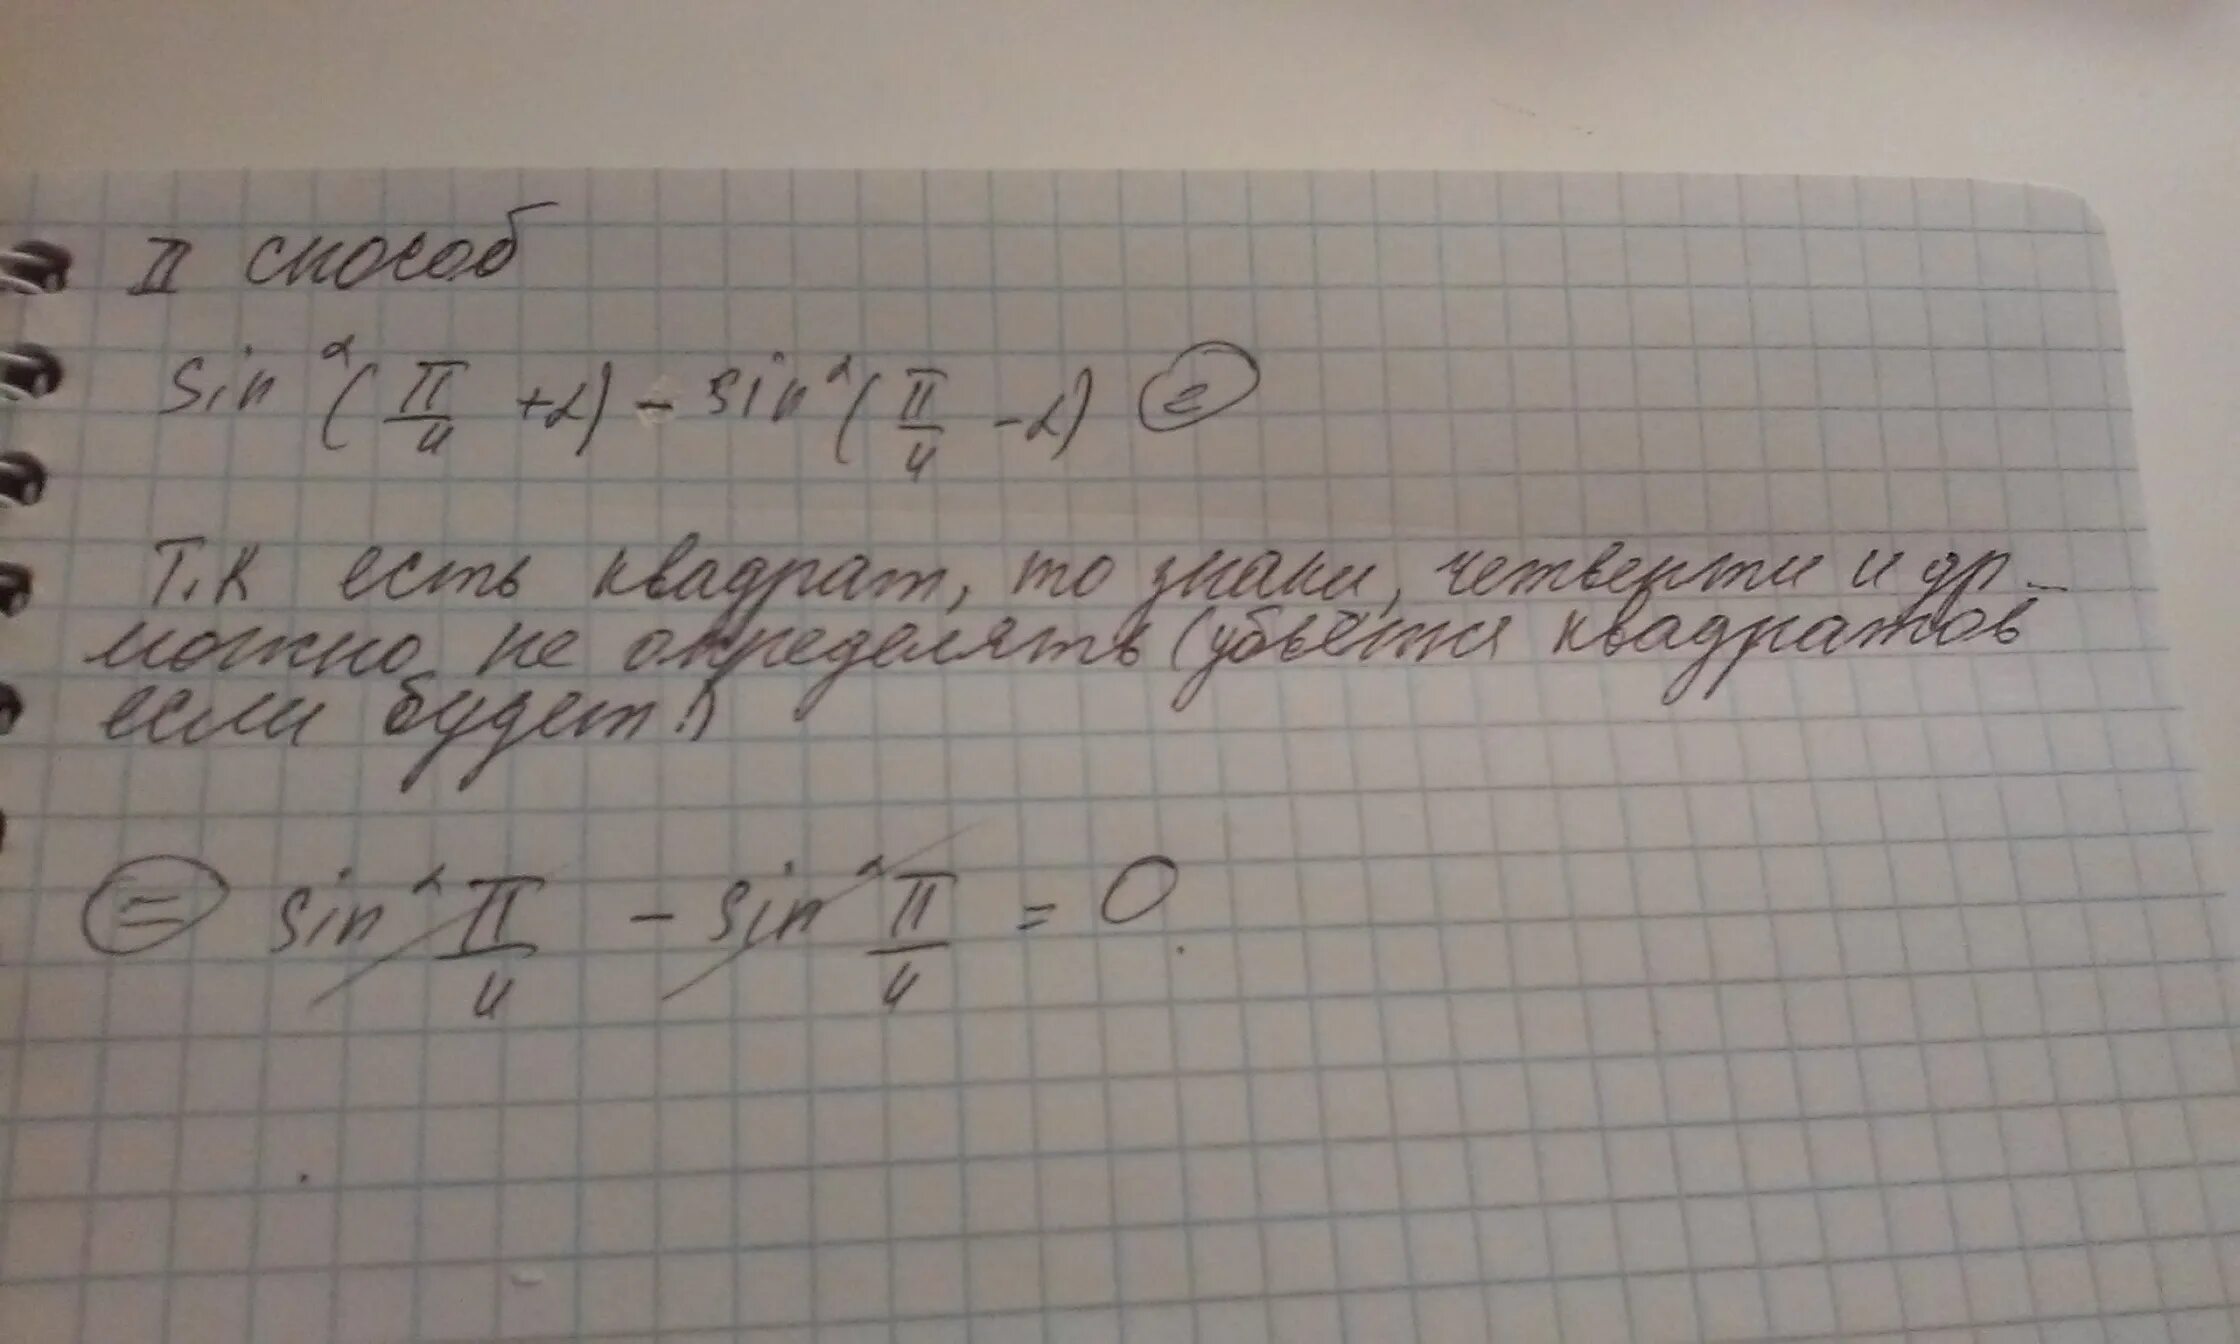 II способ
sin²(π/4 +α) - sin²(π/4 -α) (=)
Т.К есть квадрат, то знаки, четверти и др.
можно не определять (убьётся квадратов
если будет!)
(=) sin² π/4 - sin² π/4 = 0